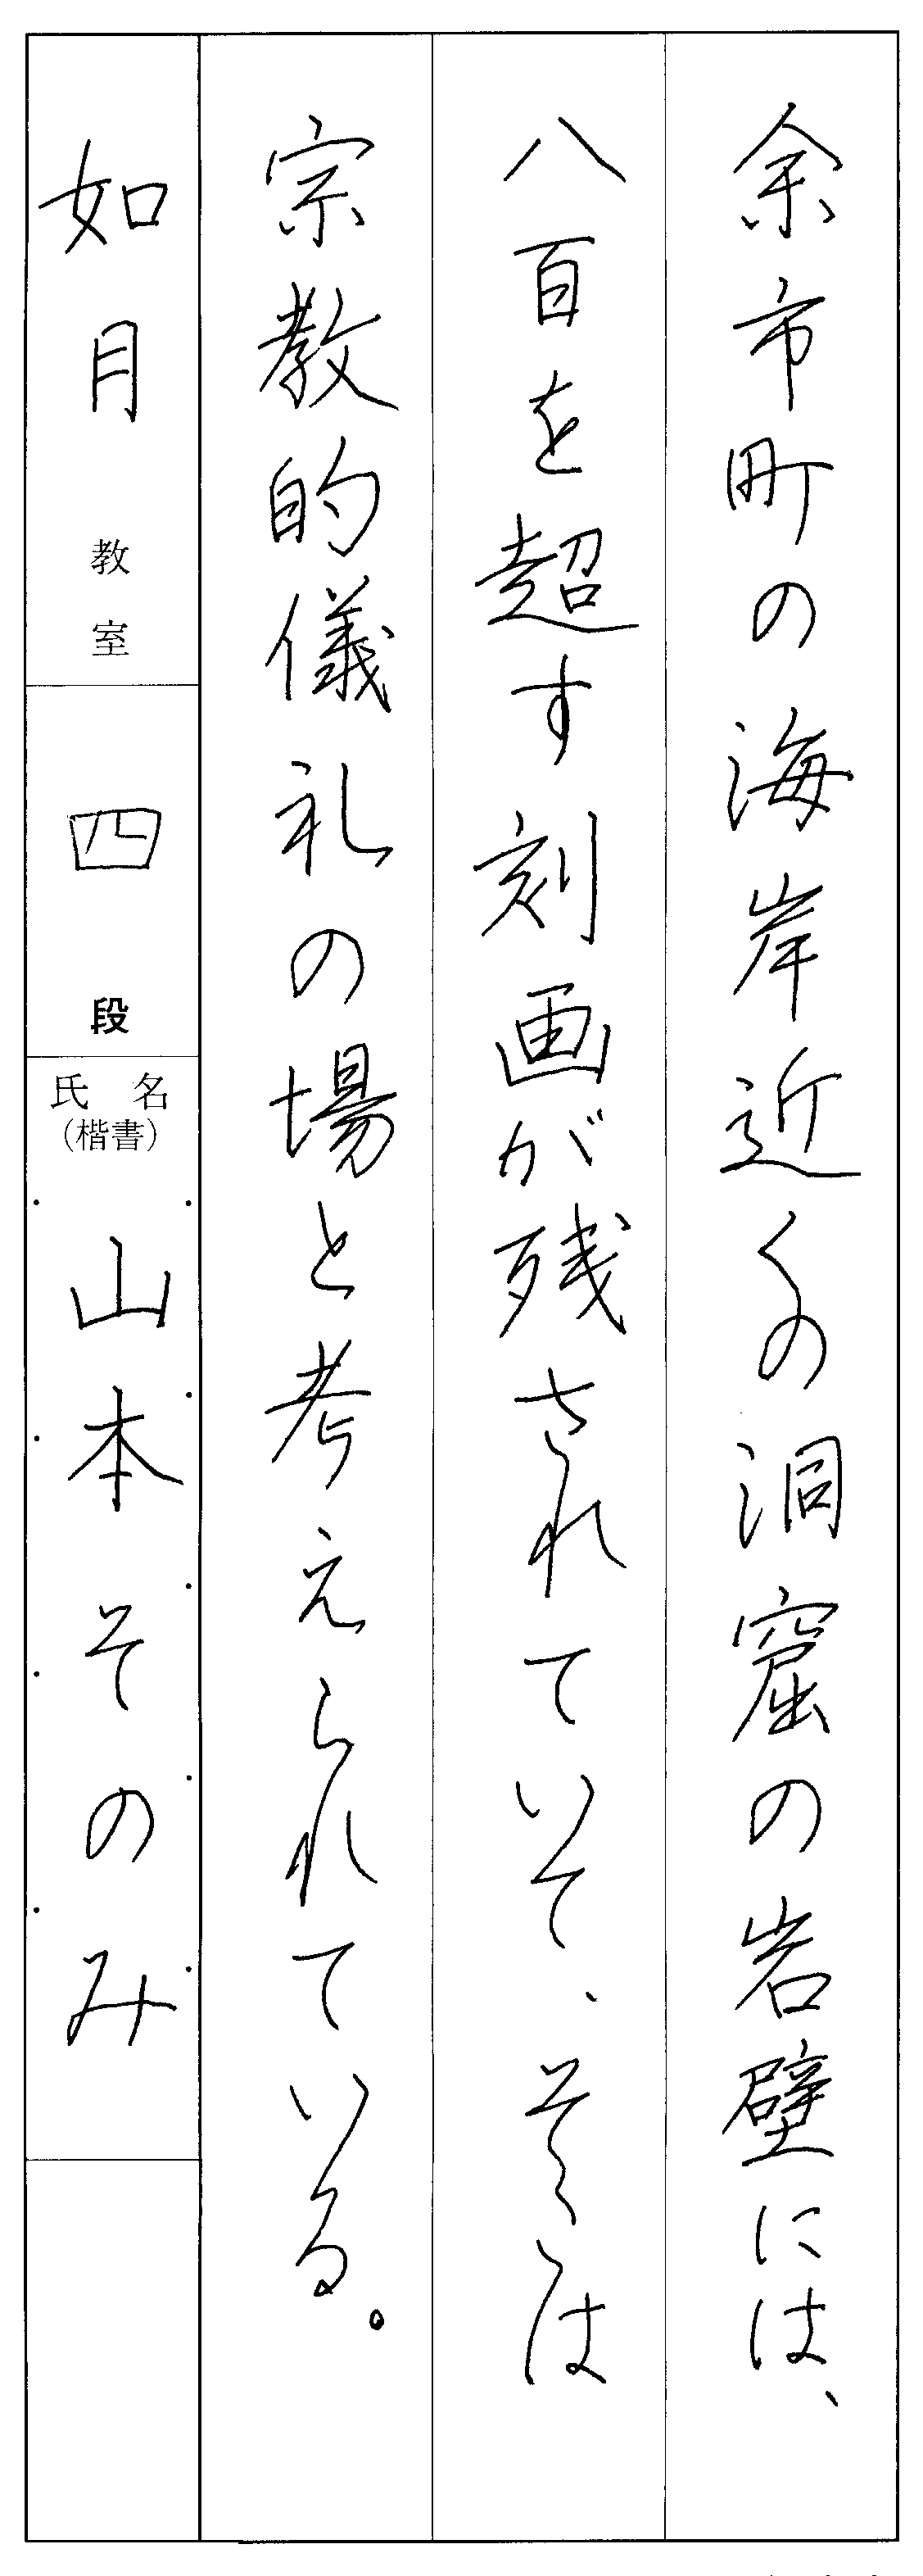 余市町の海岸近くの洞窟の岩壁には、
八百を超す刻画が残されていて、そこは
宗教的儀礼の場と考えられている。
如月教室
四段
氏名
(楷書)
山本そのみ